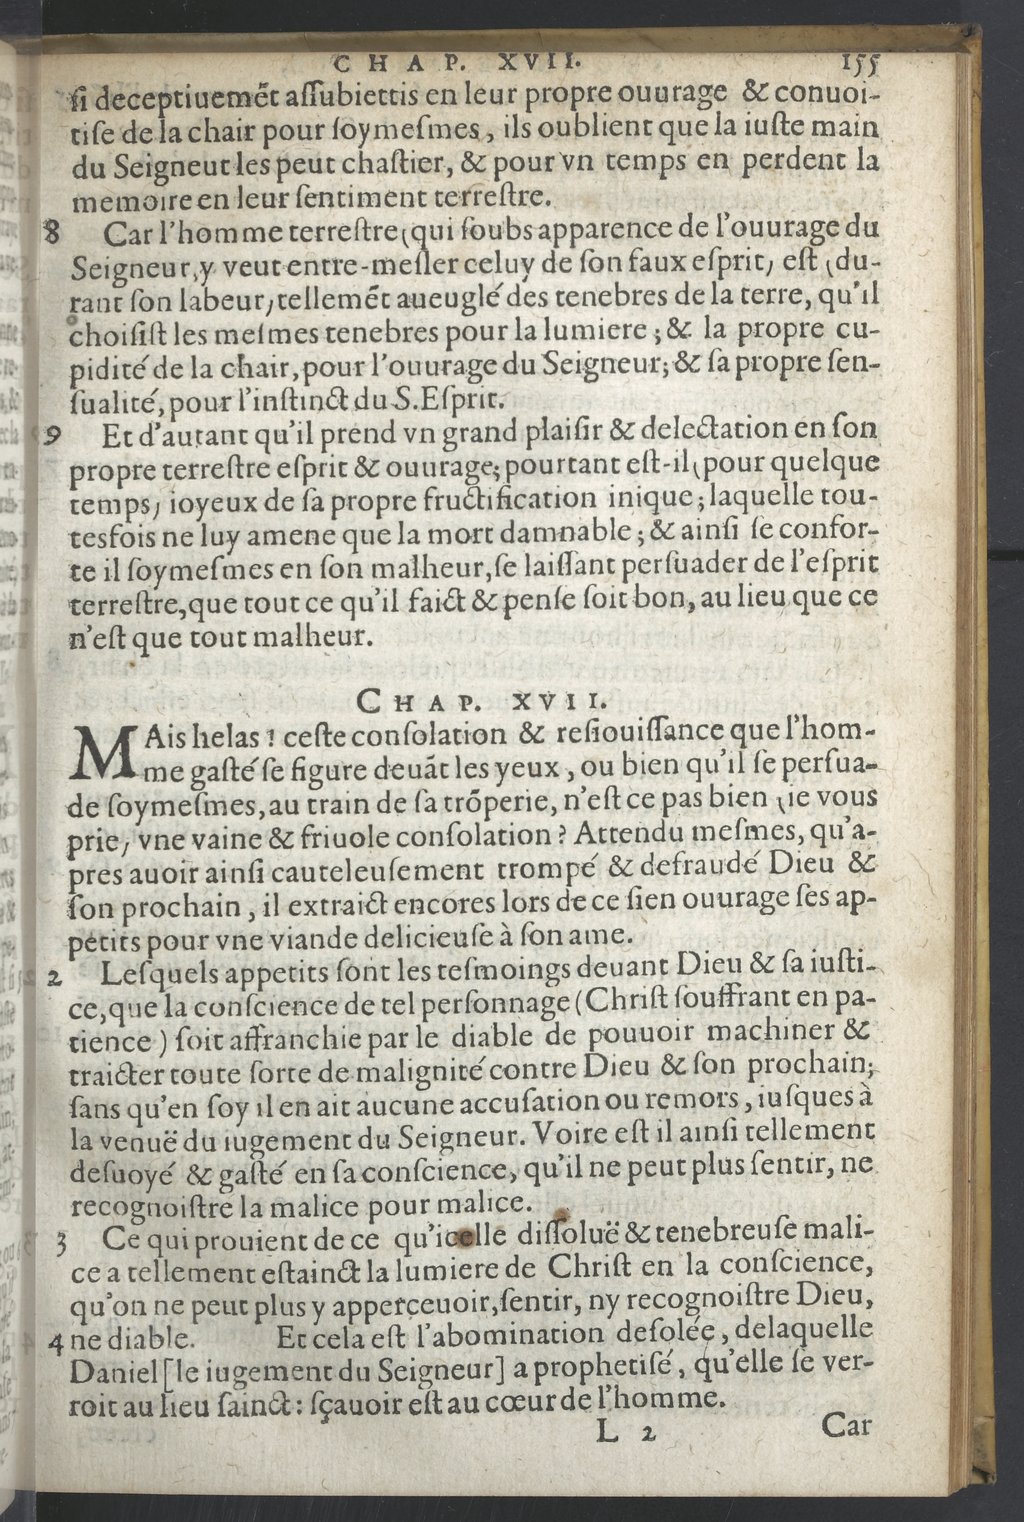 CHAP. XVII. 155
ſi deceptiuemẽt aſſubiettis en leur propre ouurage & conuoi-
tiſe de la chair pour ſoymeſmes, ils oublient que la iuſte main
du Seigneur les peut chaſtier, & pour vn temps en perdent la
memoire en leur ſentiment terreſtre.
8 Car l'homme terreſtre (qui ſoubs apparence de l'ouurage du
Seigneur, y veut entre-meſler celuy de ſon faux eſprit) eſt (du-
rant ſon labeur) tellemẽt aueuglé des tenebres de la terre, qu'il
choiſiſt les meſmes tenebres pour la lumiere; & la propre cu-
pidité de la chair, pour l'ouurage du Seigneur; & ſa propre ſen-
ſualité, pour l'inſtinct du S. Eſprit.
9 Et d'autant qu'il prend vn grand plaiſir & delectation en ſon
propre terreſtre eſprit & ouurage; pourtant eſt-il (pour quelque
temps) ioyeux de ſa propre fructification inique; laquelle tou-
tesfois ne luy amene que la mort damnable; & ainſi ſe confor-
te il ſoymeſmes en ſon malheur, ſe laiſſant perſuader de l'eſprit
terreſtre, que tout ce qu'il faict & penſe ſoit bon, au lieu que ce
n'eſt que tout malheur.
CHAP. XVII.
MAis helas! ceſte conſolation & reſiouiſſance que l'hom-
me gaſté ſe figure deuãt les yeux, ou bien qu'il ſe perſua-
de ſoymeſmes, au train de ſa trõperie, n'eſt ce pas bien (ie vous
prie) vne vaine & friuole conſolation? Attendu meſmes, qu'a-
pres auoir ainſi cauteleuſement trompé & defraudé Dieu &
ſon prochain, il extraict encores lors de ce ſien ouurage ſes ap-
petits pour vne viande delicieuſe à ſon ame.
2 Leſquels appetits ſont les teſmoings deuant Dieu & ſa iuſti-
ce, que la conſcience de tel perſonnage (Chriſt ſouffrant en pa-
tience) ſoit affranchie par le diable de pouuoir machiner &
traicter toute ſorte de malignité contre Dieu & ſon prochain;
ſans qu'en ſoy il en ait aucune accuſation ou remors, iuſques à
la venuë du iugement du Seigneur. Voire eſt il ainſi tellement
deſuoyé & gaſté en ſa conſcience, qu'il ne peut plus ſentir, ne
recognoiſtre la malice pour malice.
3 Ce qui prouient de ce qu'icelle diſſoluë & tenebreuſe mali-
ce a tellement eſtainct la lumiere de Chriſt en la conſcience,
qu'on ne peut plus y apperçeuoir, ſentir, ny recognoiſtre Dieu,
4 ne diable. Et cela eſt l'abomination deſolée, delaquelle
Daniel [le iugement du Seigneur] a prophetiſé, qu'elle ſe ver-
roit au lieu ſainct: ſçauoir eſt au cœur de l'homme.
L 2 Car